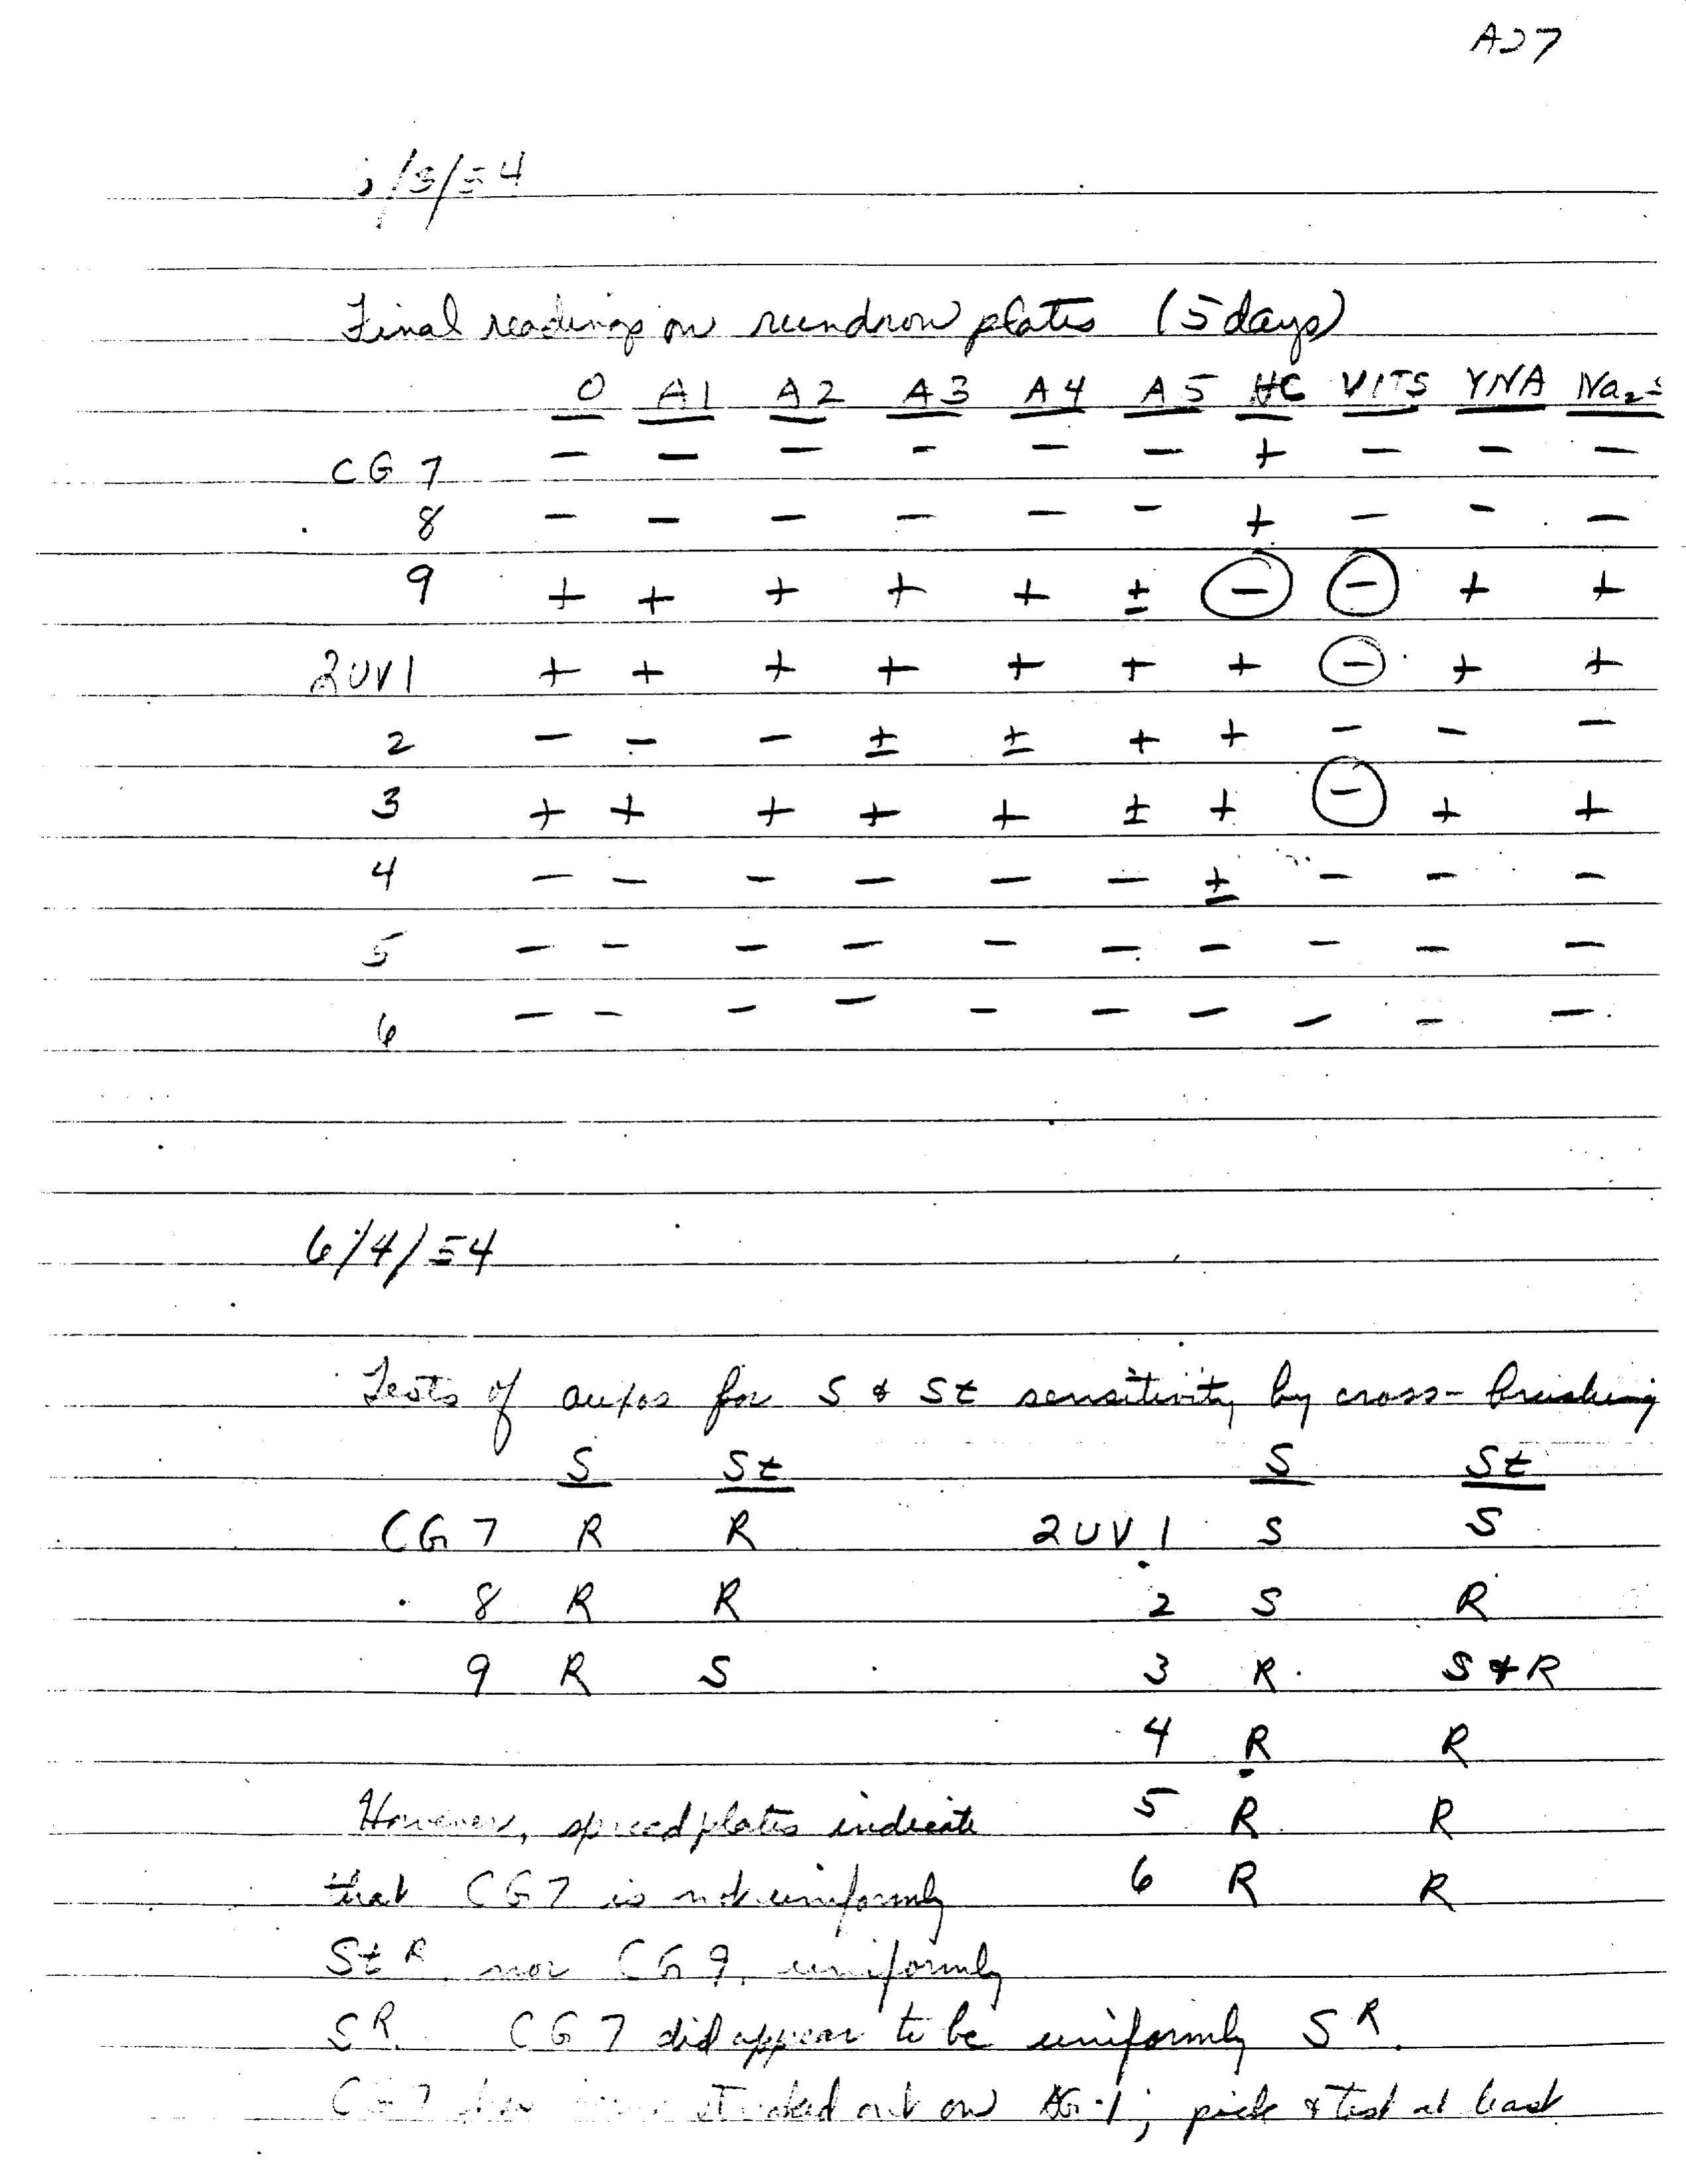 A27
/3/54
Final readings on rundown plates (5 days)
O A1 A2 A3 A4 A5 HC VITS YNA Na₂S
CG 7 − − − − − − + − − −
8 − − − − − − + − − −
9 + + + + + ± − − + +
2UV1 + + + + + + + − + +
2 − − − ± ± + + − − −
3 + + + + + ± + − + +
4 − − − − − − ± − − −
5 − − − − − − − − − −
6 − − − − − − − − − −
6/4/54
Tests of auxos for S & St sensitivity by cross-brushing
S St S St
CG 7 R R 2UV.1 S S
8 R R 2 S R
9 R S 3 R S & R
4 R R
However, spread plates indicate 5 R R
that CG7 is not uniformly 6 R R
St R nor CG 9, uniformly
S R. CG 7 did appear to be uniformly S R.
CG 7 streaked out on AG-1; pick & test at least